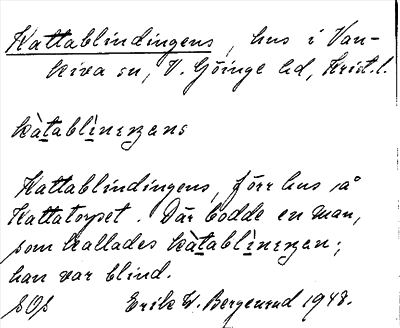 Kattablindingens, hus i Van-
kiva sn, V. Göinge hd, Krist.l.
kàtablìnenens
Kattablindingens, förr hus på
Kattatorpet. Där bodde en man,
som kallades kàtablìnenen;
han var blind.
Erik W. Bergenrud 1948.